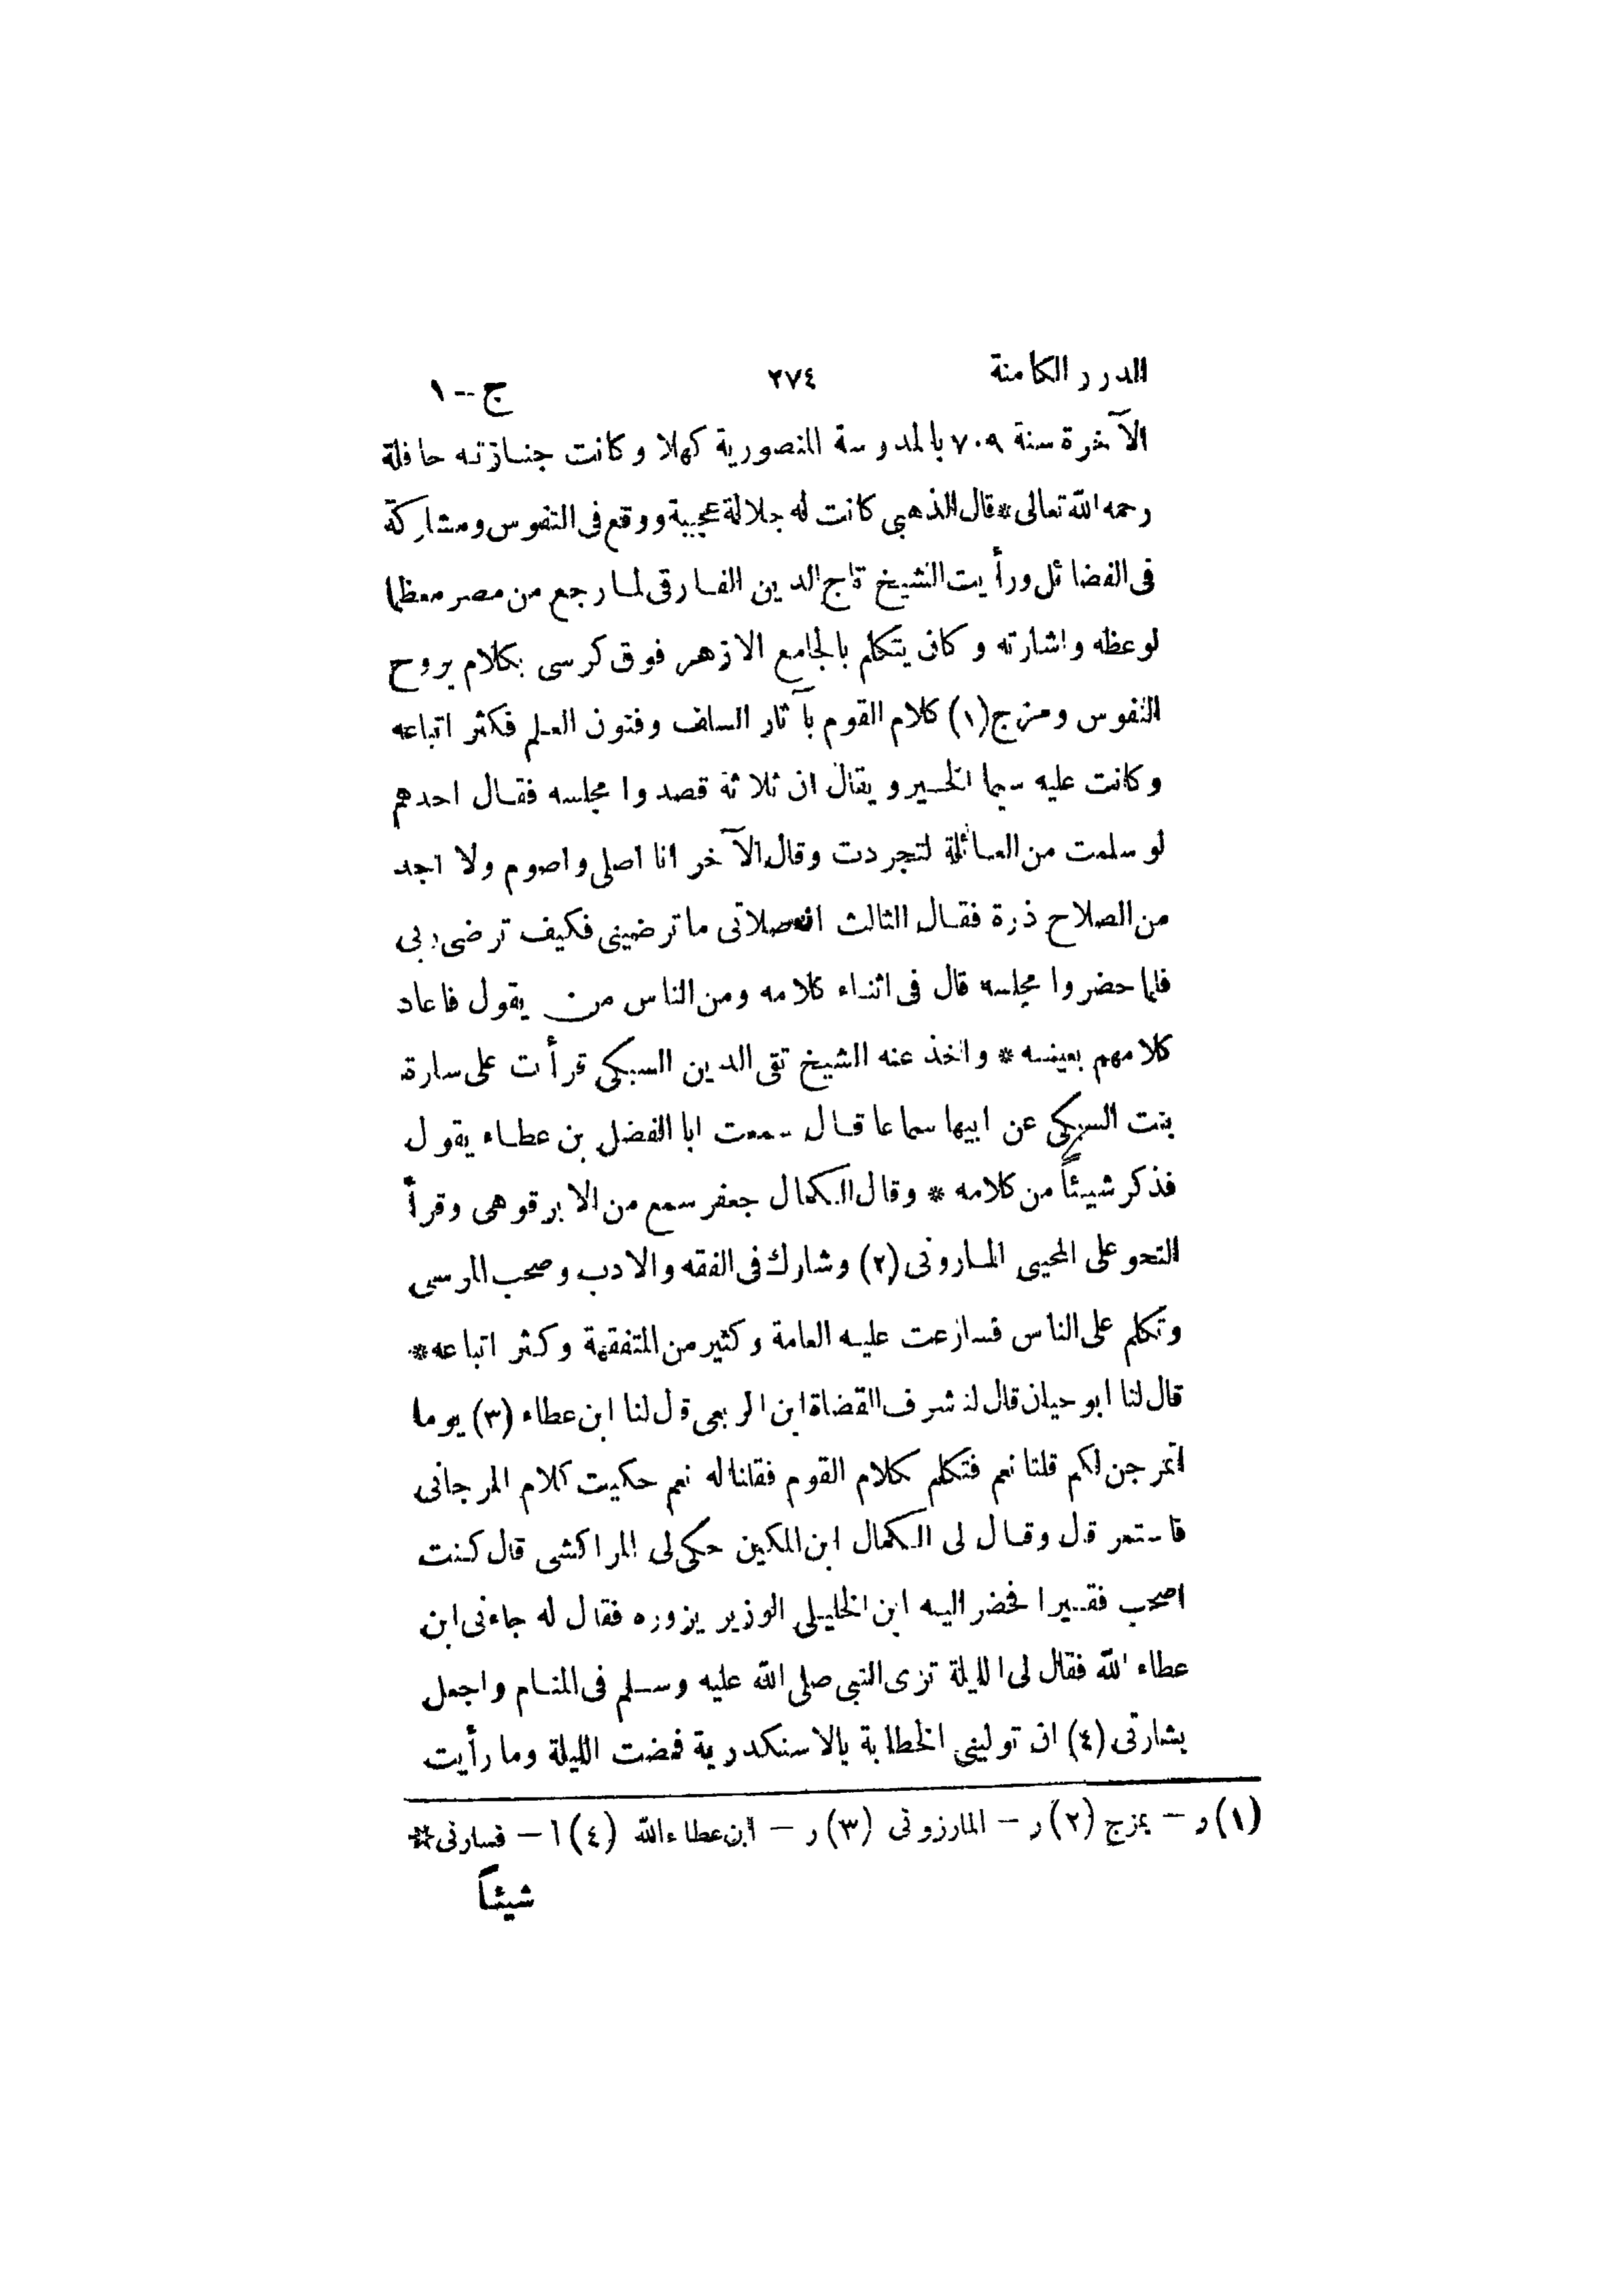 الدرر الكامنة ٢٧٤ ج--١
الآخرة سنة ٧٠٩ بالمدرسة المنصورية كهلا وكانت جنازته حافلة
رحمه الله تعالى * قال الذهبي كانت له جلالة عجيبة ووقع فى النفوس ومشاركة
فى الفضائل ورأيت الشيخ تاج الدين الفارقى لما رجع من مصر معظما
لوعظه واشارته وكان يتكلم بالجامع الازهر فوق كرسى بكلام يروح
النفوس ومزج (١) كلام القوم بآثار السلف وفنون العلم فكثر اتباعه
وكانت عليه سيما الخير ويقال ان ثلاثة قصدوا مجلسه فقال احدهم
لو سلمت من العائلة لتجردت وقال الآخر انا اصلى واصوم ولا اجد
من الصلاح ذرة فقال الثالث ان صلاتى ما ترضينى فكيف ترضى ربى
فلما حضروا مجلسه قال فى اثناء كلامه ومن الناس من يقول فاعاد
كلامهم بعينه * واخذ عنه الشيخ تقى الدين السبكى قرأت على سارة
بنت السبكى عن ابيها سماعا قال سمعت ابا الفضل بن عطاء يقول
فذكر شيئاً من كلامه * وقال الكمال جعفر سمع من الابرقوهى وقرأ
النحو على المحيى المارونى (٢) وشارك فى الفقه والادب وصحب المرسى
وتكلم على الناس فسارعت عليه العامة وكثير من المتفقهة وكثر اتباعه *
قال لنا ابو حيان قال لنا شرف القضاة ابن الربعى قال لنا ابن عطاء (٣) يوما
اتمرجن لكم قلنا نعم فتكلم بكلام القوم فقلنا له نعم حكيت كلام المرجانى
فاستمر قال وقال لى الكمال ابن المكين حكى لى المراكشى قال كنت
اصحب فقيرا فحضر اليه ابن الخليلى الوزير يزوره فقال له جاءنى ابن
عطاء الله فقال لى الليلة ترى النبى صلى الله عليه وسلم فى المنام واجعل
بشارتى (٤) ان تولينى الخطابة بالاسكندرية فمضت الليلة وما رأيت
(١) ر – يمزج (٢) ر – المارزونى (٣) ر – ابن عطاء الله (٤) ا – فسارنى *
شيئاً